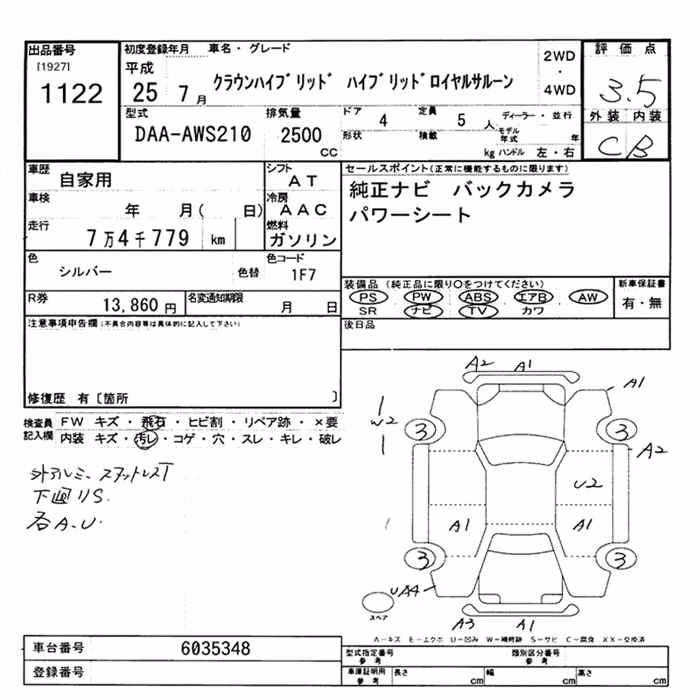 出品番号
[1927]
1122
初度登録年月 車名・グレード
平成
25 7 月
クラウンハイブリッド ハイブリッドロイヤルサルーン
2WD
・
4WD
評価点
3.5
外装 内装
C B
型式
DAA-AWS210
排気量
2500
CC
ドア 4
定員 5 人
ディーラー・並行
形状
積載 kg
モデル年式 年
ハンドル 左・右
車歴
自家用
シフト
AT
車検
年 月( 日)
冷房
AAC
走行
7万4千779 km
燃料
ガソリン
色
シルバー
色替
色コード
1F7
R券
13,860 円
名変通知期限
月 日
セールスポイント(正常に機能するものに限ります)
純正ナビ バックカメラ
パワーシート
装備品 (純正品に限り○をつけてください)
PS PW ABS エアB AW
SR ナビ TV カワ
新車保証書
有・無
後日品
注意事項申告欄(不具合内容等は具体的に記入して下さい)
修復歴 有[箇所 ]
検査員
記入欄
FW キズ・飛石・ヒビ割・リペア跡・×要
内装 キズ・汚レ・コゲ・穴・スレ・キレ・破レ
外アルミ スタットレスT
下廻りS.
各A.U
A2 A1
A1
W2
3 3
A2
U2
A1 A1
3 3
UA4
スペア
A3 A1
A−キズ E−エクボ U−凹み W−補修跡 S−サビ C−腐食 XX−交換済
車台番号
6035348
登録番号
型式指定番号
参考
類別区分番号
参考
車庫証明用
参考
長さ cm
幅 cm
高さ cm